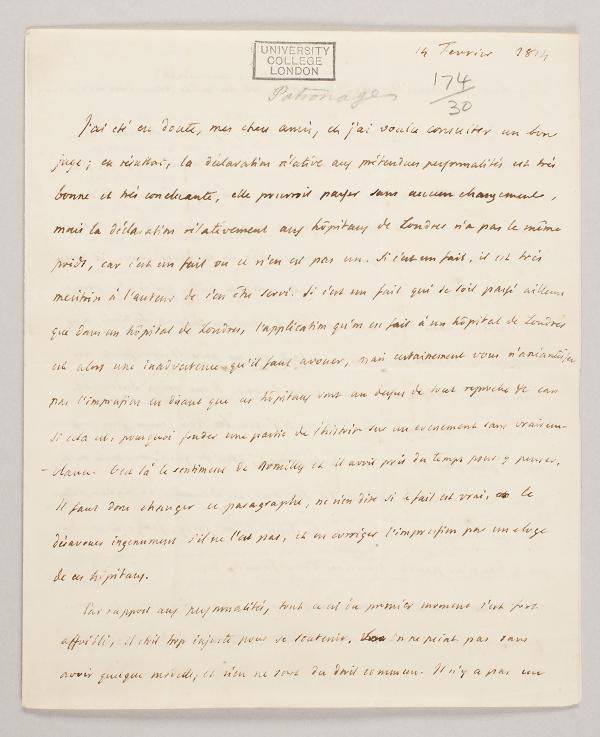 14 Fevrier 1814
UNIVERSITY
COLLEGE
LONDON
Patronage
174
30
J'ai été en doute, mes chers amis, et j'ai voulu consulter un bon
juge; en résultat, la déclaration rélative aux prétendues personnalités est très
bonne et très concluante, elle pourroit passer sans aucun changement,
mais la déclaration rélativement aux hôpitaux de Londres n'a pas le même
poids, car c'est un fait ou ce n'en est pas un. Si c'est un fait, il est très
à l'auteur de s'en être servi. Si c'est un fait qui se soit passé ailleurs
que dans un hôpital de Londres, l'application qu'on en fait à un hôpital de Londres
est alors une inadvertence qu'il faut avouer, mais certainement vous n'anéantissez
pas l'impression en disant que ces hôpitaux sont au dessus de tout reproche car
si cela est, pourquoi fonder une partie de l'histoire sur un evenement sans vraisem-
-blance. C'est là le sentiment de Romilly et il avoit pris du tems pour y penser.
Il faut donc changer ce paragraphe, ne rien dire si le fait est vrai, le
désavouer ingenument s'il ne l'est pas, et en corriger l'impression par un eloge
de ces hôpitaux.
Par rapport aux personnalités, tout ce cri du premier moment s'est fort
affoibli, il étoit trop injuste pour se soutenir. on ne peint pas sans
avoir quelque modèle, et rien ne sort du droit commun. Il n'y a pas un